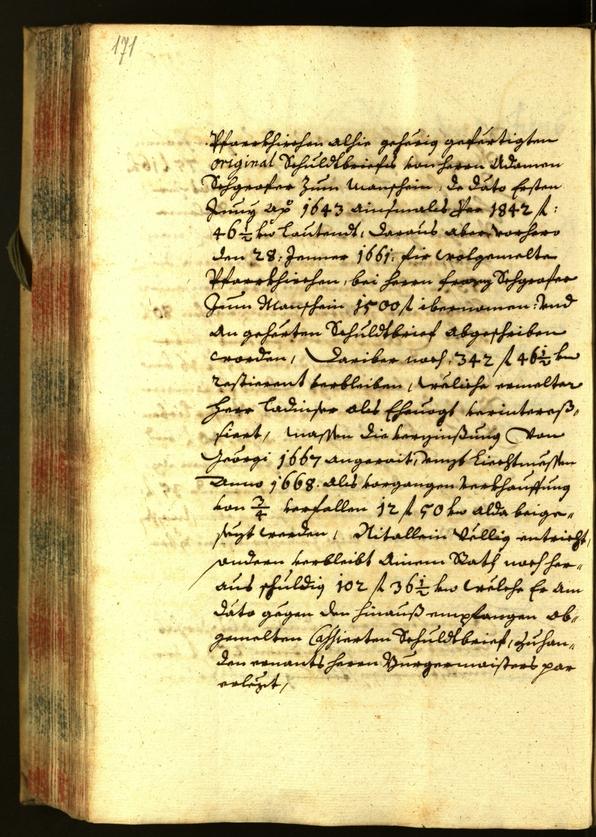 171
Pfarrkhirchen alhie gehörig gefertigten
original Schuldtbriefs von herrn Adamen
Schgraffer zum Manshein, de dato Ersten
Juny ao 1643 ainsmals per 1842 f:
46½ kr lautendt, daraus aber vorhero
den 28: Jenner 1661. für wolgemelte
Pfarrkhirchen, bei herrn Franz Schgraffer
zum Manshein 1500 f ibernomen: und
an gehörten Schuldtbrief abgeschriben
worden, Darüber noch 342 f 46½ kr
restierent verbleiben, welliche ermelter
herr Ladinser als Ehevogt verinteres-
siert, massen die verzinßung von
Georgi 1667 angerait, unzt Liechtmessen
Anno 1668. als vorgangen verkhauffung
von ¾ verfallen 12 f 50 kr alda beige-
sezt werden, Nit allein völlig entricht,
sondern verbleibt Ainem Rath noch her-
aus schuldig 102 f 36½ kr welche Er am
dato gegen den hinauß empfangen ob-
gemelten Cassierten Schuldtbrief, zuhan-
den ernants herrn Burgermaisters par
erlegt,